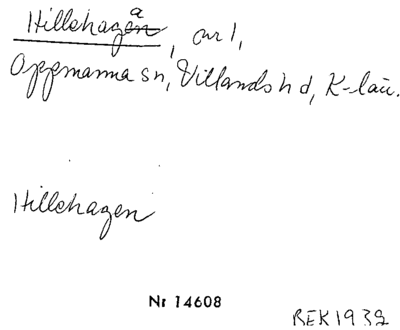 Hillehaga, avs,
Oppmanna sn, Villands hd, K-län.
Hillehagen
Nr 14608
BEK 1932